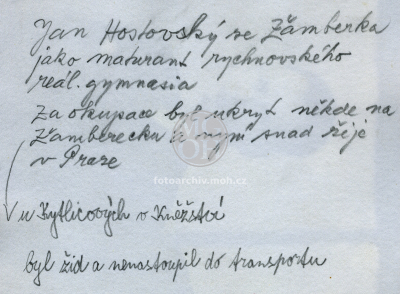 Jan Hostovský ze Žamberka
jako maturant rychnovského
reál. gymnasia
za okupace byl ukryt někde na
Žamberecku a nyní snad žije
v Praze
fotoarchiv.moh.cz
u Kytlicových v Kněžství
byl žid a nenastoupil do transportu